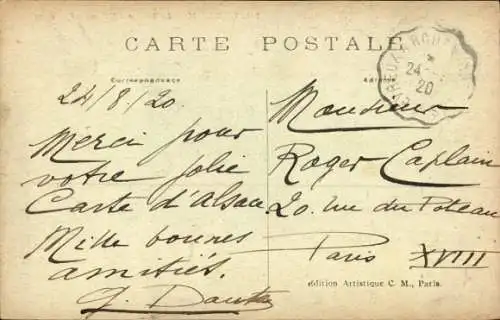 CARTE POSTALE
Correspondance
Adresse
24/8/20
Merci pour
votre jolie
Carte d'alsace
Mille bonnes
amitiés.
Monsieur
Roger Caplain
20. rue du Poteau
Paris XVIII
24
20
édition Artistique C. M., Paris.